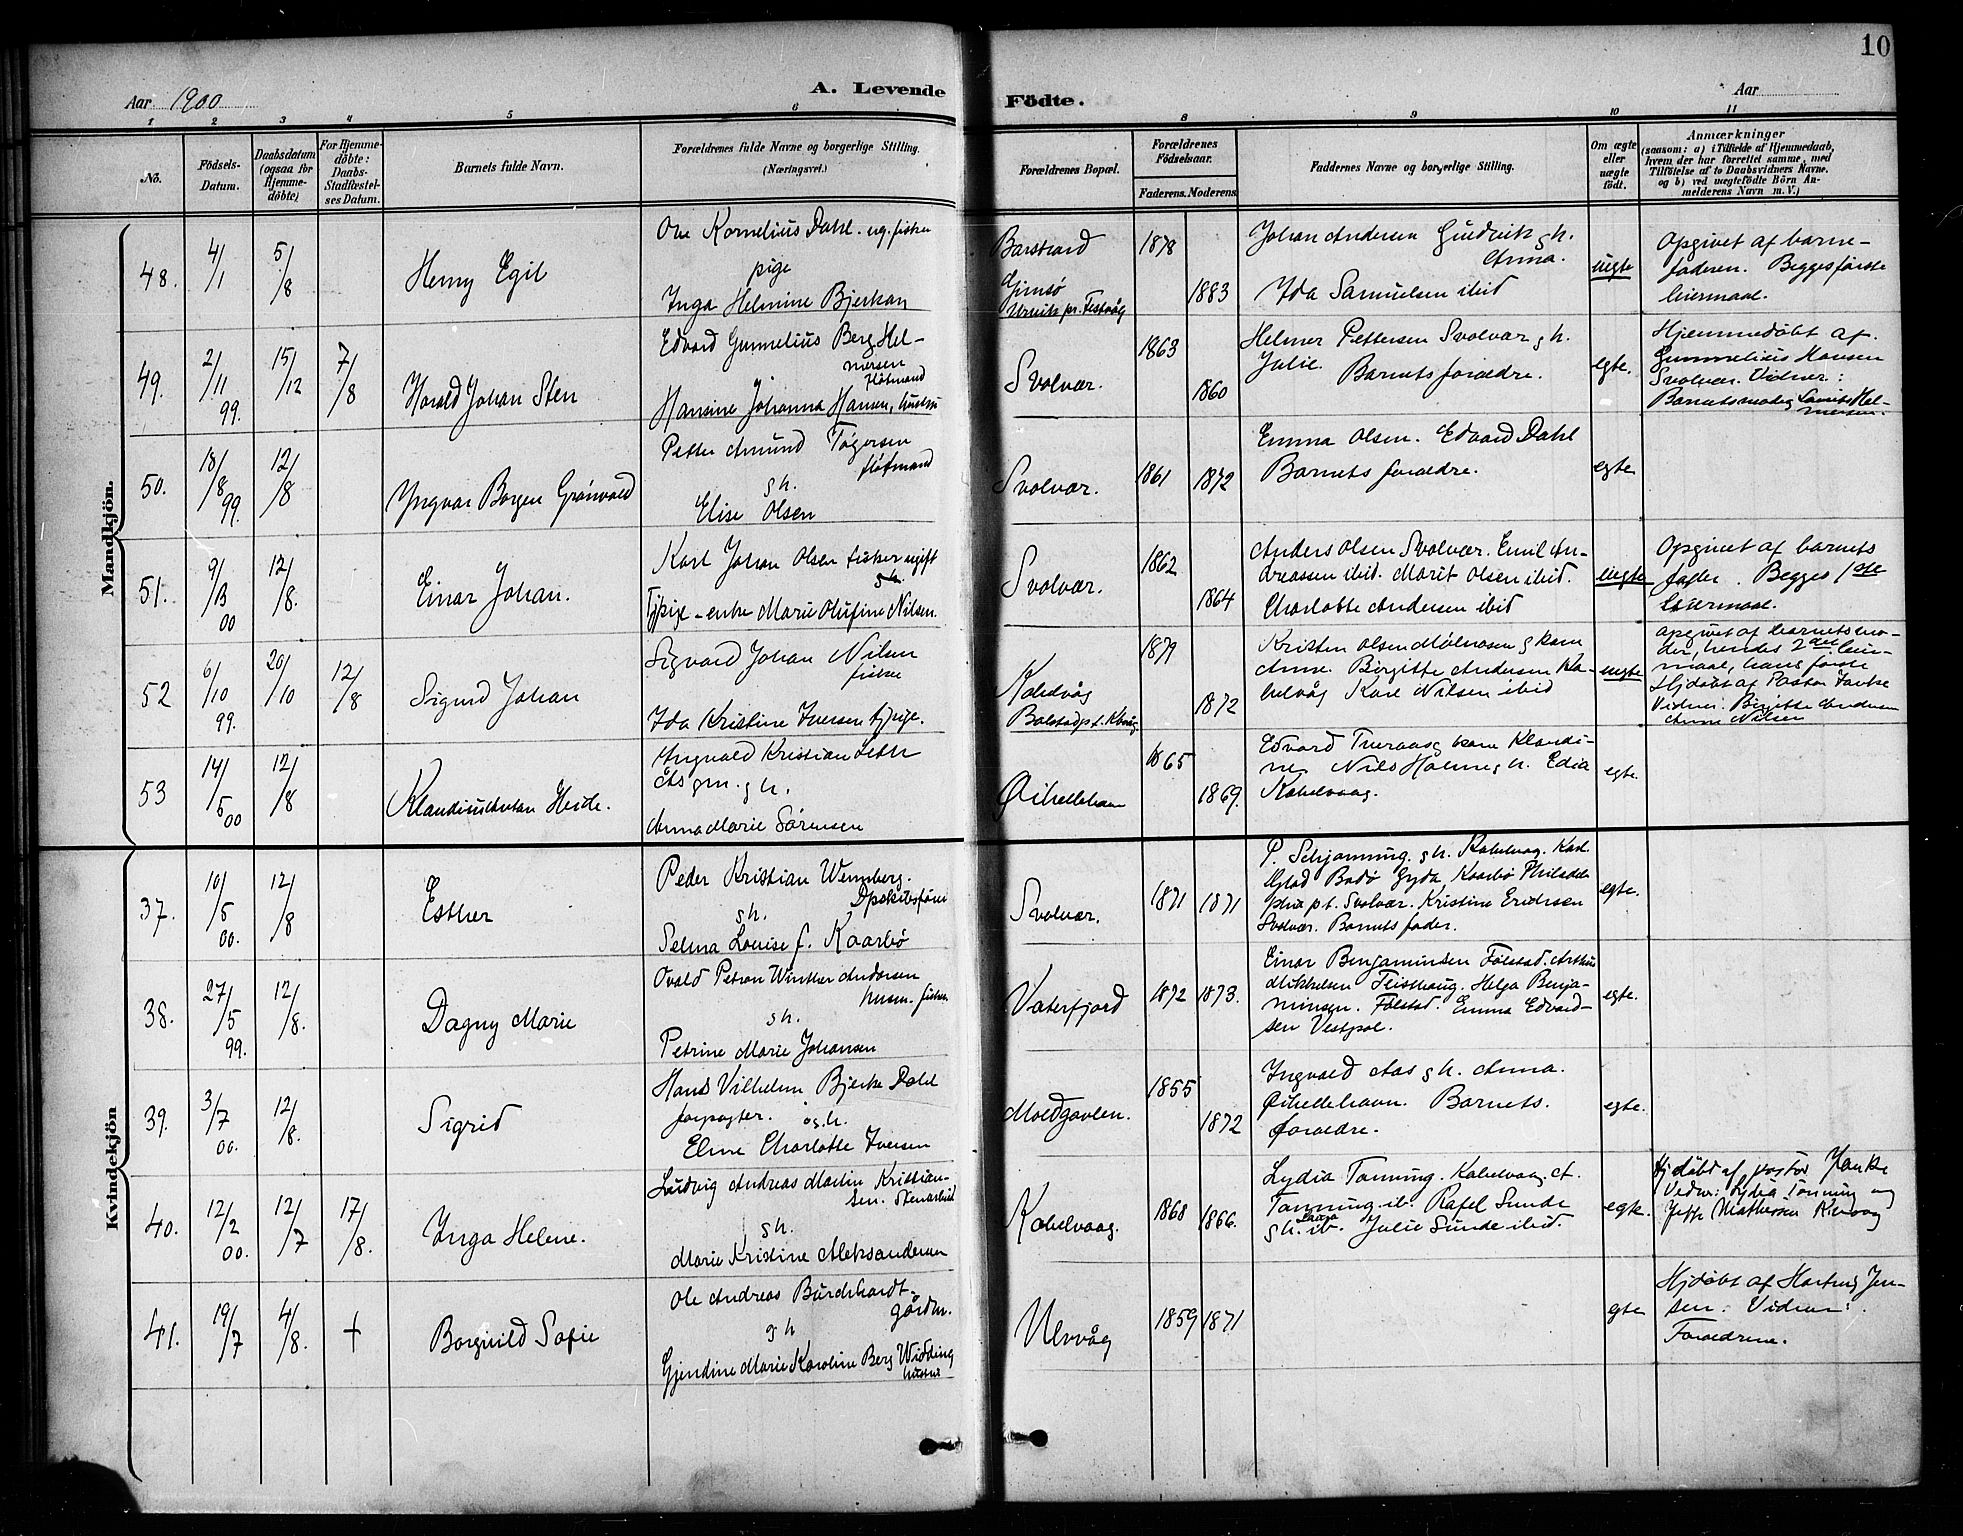 10
Aar 1900
A. Levende
Födte.
Aar
1 2 3 4 5 6
8 9 10 11
No.
Födsels-
Datum.
Daabsdatum
(ogsaa for
Hjemme-
döbte)
For Hjemme-
döbte:
Daabs-
Stadfæstel-
ses Datum.
Barnets fulde Navn.
Forældrenes fulde Navne og borgerlige Stilling.
(Næringsvei.)
Forældrenes Bopæl.
Forældrenes
Födselsaar.
Faderens. Moderens.
Faddernes Navne og borgerlige Stilling.
Om ægte
eller
uægte
födt.
Anmærkninger
(saasom: a) i Tilfælde af Hjemmedaab,
hvem der har forrettet samme, med
Tilföielse af to Daabsvidners Navne.
og b) ved uægtefödte Börn An-
melderens Navn m. V.)
Mandkjön.
48. 4/1 5/8 Henry Egil
Ove Kornelius Dahl. ug. fisker
pige
Inga Helmine Bjerkan
Barstrand
Gimsö
1878 1883
Johan Andersen Gudvik g h.
Anna.
Ida Samuelsen ibid
uegte
Opgivet af barne-
faderen. Begges første
leiermaal.
49. 2/11 99. 15/12 7/8 Harald Johan Sten
Edvard Gunnelius Berg Hel-
mersen
fløtmand
Hansine Johanna Hansen, hustru
Svolvær.
1863 1860
Helmer Pettersen Svolvær g h.
Julie. Barnets foraedre.
egte.
Hjemmedøbt af
Gunnelius Hansen
Svolvær. Vidner:
Barnets moder Hel-
mersen.
50. 18/8 99. 12/8 Yngvar Borgen Grönvold
Petter Amund Tøgersen
fløtmand
g h.
Elise Olsen
Svolvær.
1861 1872
Emma Olsen. Edvard Dahl
Barnets foraedre.
egte
51. 9/3 00 12/8. Einar Johan.
Karl Johan Olsen fisker ugift
g h.
Tjpige - enke Marie Olufine Nilsen.
Svolvær.
1862 1864
Anders Olsen Svolvær. Emil An-
dreassen ibid. Marit Olsen ibid.
Charlotte Andersen ibid
uegte
Opgivet af barnets
fader. Begges 1ste
Leiermaal.
52 6/10 99. 20/10 12/8 Sigurd Johan
Sigvard Johan Nilsen
fisker
Ida Kristine Iversen tjpige.
Kabelvåg
1879 1872
Kristen Olsen Mølnosen g kone
Anne. Birgitte Andersen Ka-
belvåg Karl Nilsen ibid
uegte
opgivet af barnets mo-
der, hendes 2det leier-
maal, hans første
Hjdøbt af Pastor Janke
Vidner. Birgitte Andersen
Anna Nilsen
53 14/5 00 12/8 Klaudius Anton Heide.
Ingvald Kristian Seth
g h.
Anna Marie Sørensen
Øihellehavn
1865 1869.
Edvard Tueraas g kone Klaudi-
ne Nils Holme g h. Edia
Kabelvaag.
egte.
Kvindekjön
37. 10/5 00. 12/8 Esther
Peder Kristian Wennberg.
g h.
Selma Louise f. Kaarbø
Svolvær.
1871 1871
P. Schjønning. g h. Kabelvag. Karl
Bodø Gyda Kaarbø Philadel
phia p t. Svolvær. Kristine Eriksen
Svolvær. Barnets fader.
egte.
38. 27/5 99. 12/8. Dagny Marie
Osvald Petran Winther Andersen
husm. fisker
g h.
Petrine Marie Johansen
Vaterfjord
1872 1873.
Einar Benjaminsen Følstad. Arthur
Mikkelsen Teisthaug. Helga Benja-
minsen. Følstad. Emma Edvard-
sen Vestpol.
egte.
39. 3/7 00. 12/8. Sigrid
Hans Vilhelm Bjerke Dahl
forpagter. og h.
Eline Charlotte Iversen
Moldgavlen.
1855 1872
Ingvald Aas g h. Anna.
Øihellehavn. Barnets.
foraedre.
egte.
40. 12/2 00. 12/7 17/8. Inga Helene.
Ludvig Andreas Martin Kristian-
sen. Stenarbeid
g h.
Marie Kristine Aleksandersen
Kabelvaag.
1868 1866.
Lydia Tønning. Kabelvaag. A.
Tønning ib. Rafel Sunde
g h. Laura ib. Julie Sunde ibid.
egte.
Hjdøbt af pastor Janke
Vidner: Lydia Tønning og
Jeth Mathessen Kervaag
41. 19/7 4/8. + Borgvild Sofie
Ole Andreas Burchhardt.
gårdm.
g h
Gjendine Marie Karoline Berg Widding
hustru
Ulvvåg
1859 1871
egte
Hjdøbt af Hartvig Jen-
sen. Vidner:
Foraedrene.